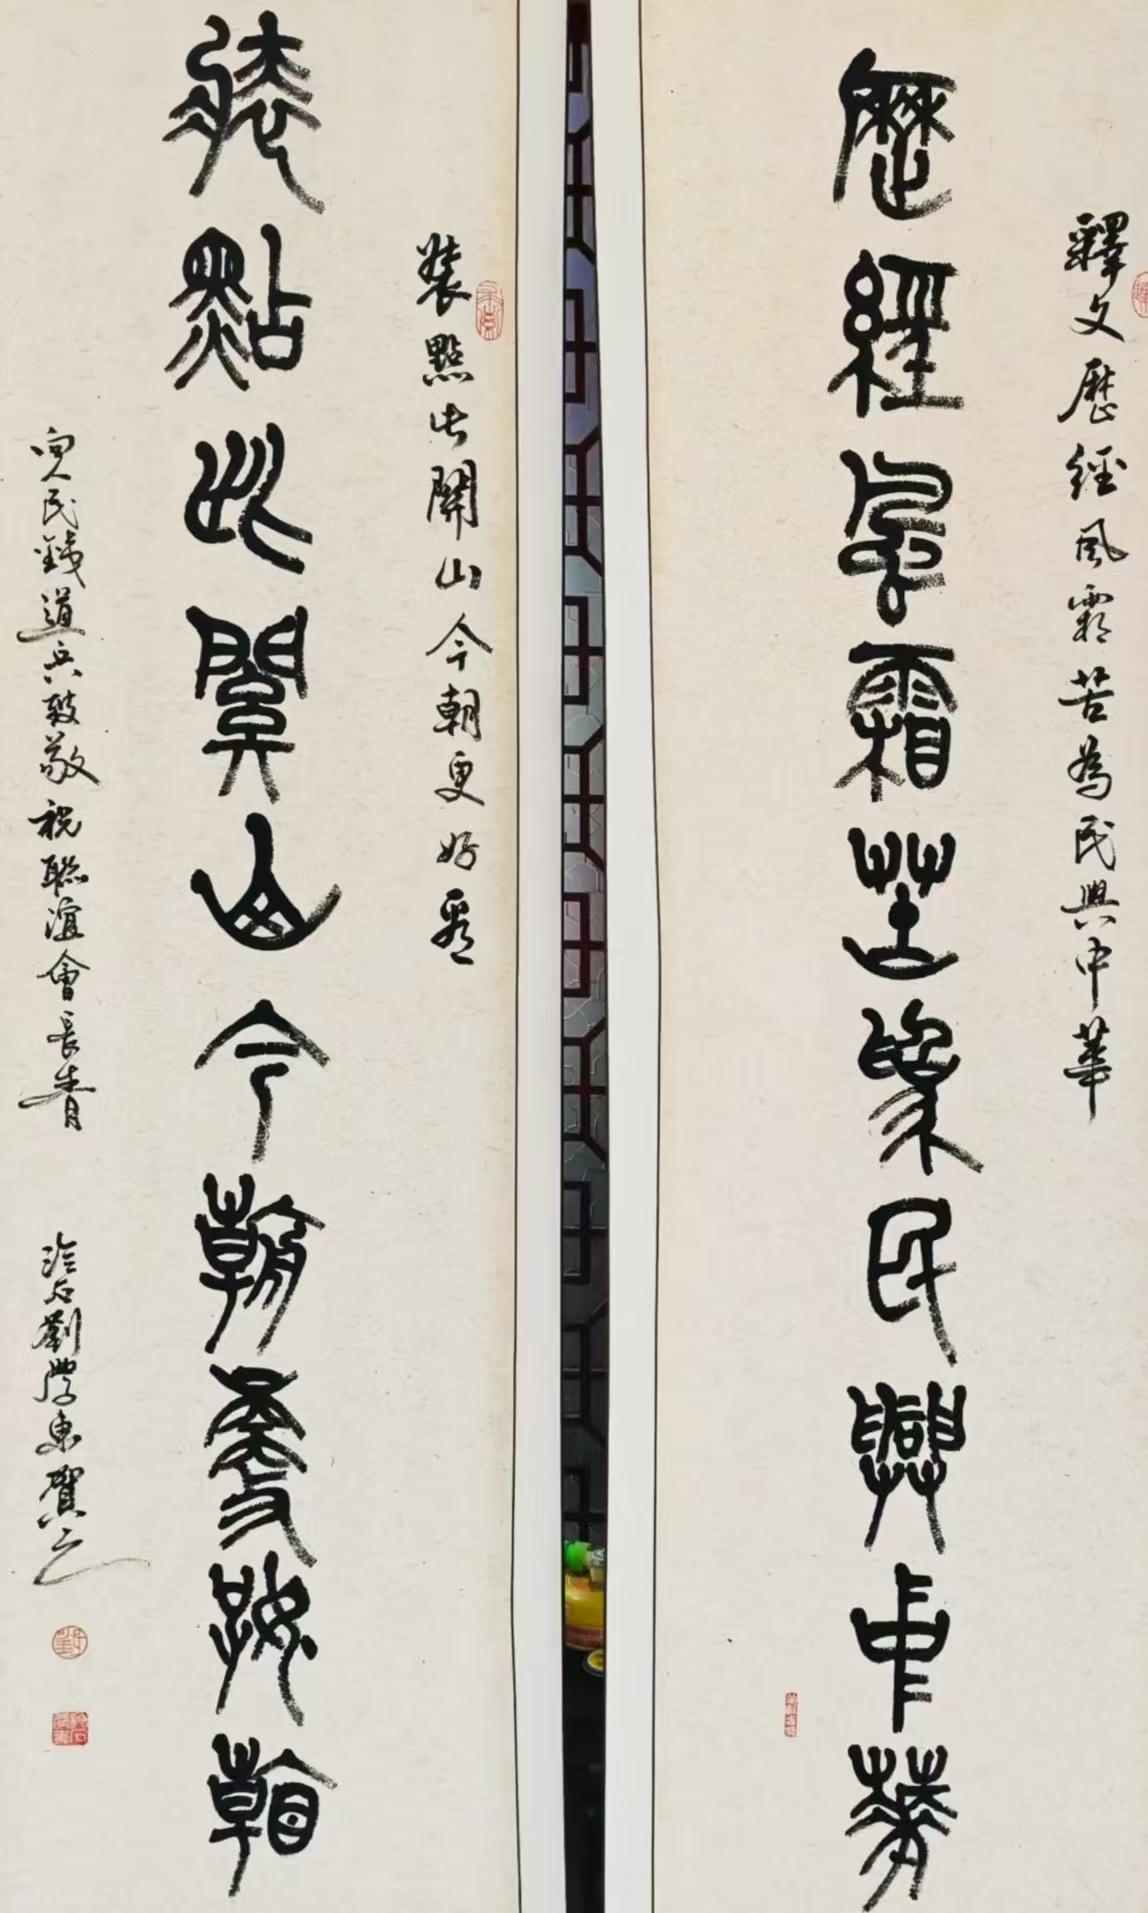 釋文歷經風霜苦為民興中華
歷經風霜苦為民興中華
裝點此關山今朝更好看
裝點此關山今朝更好看
向人民鐵道兵致敬祝聯誼會長青 石劉學東賀之